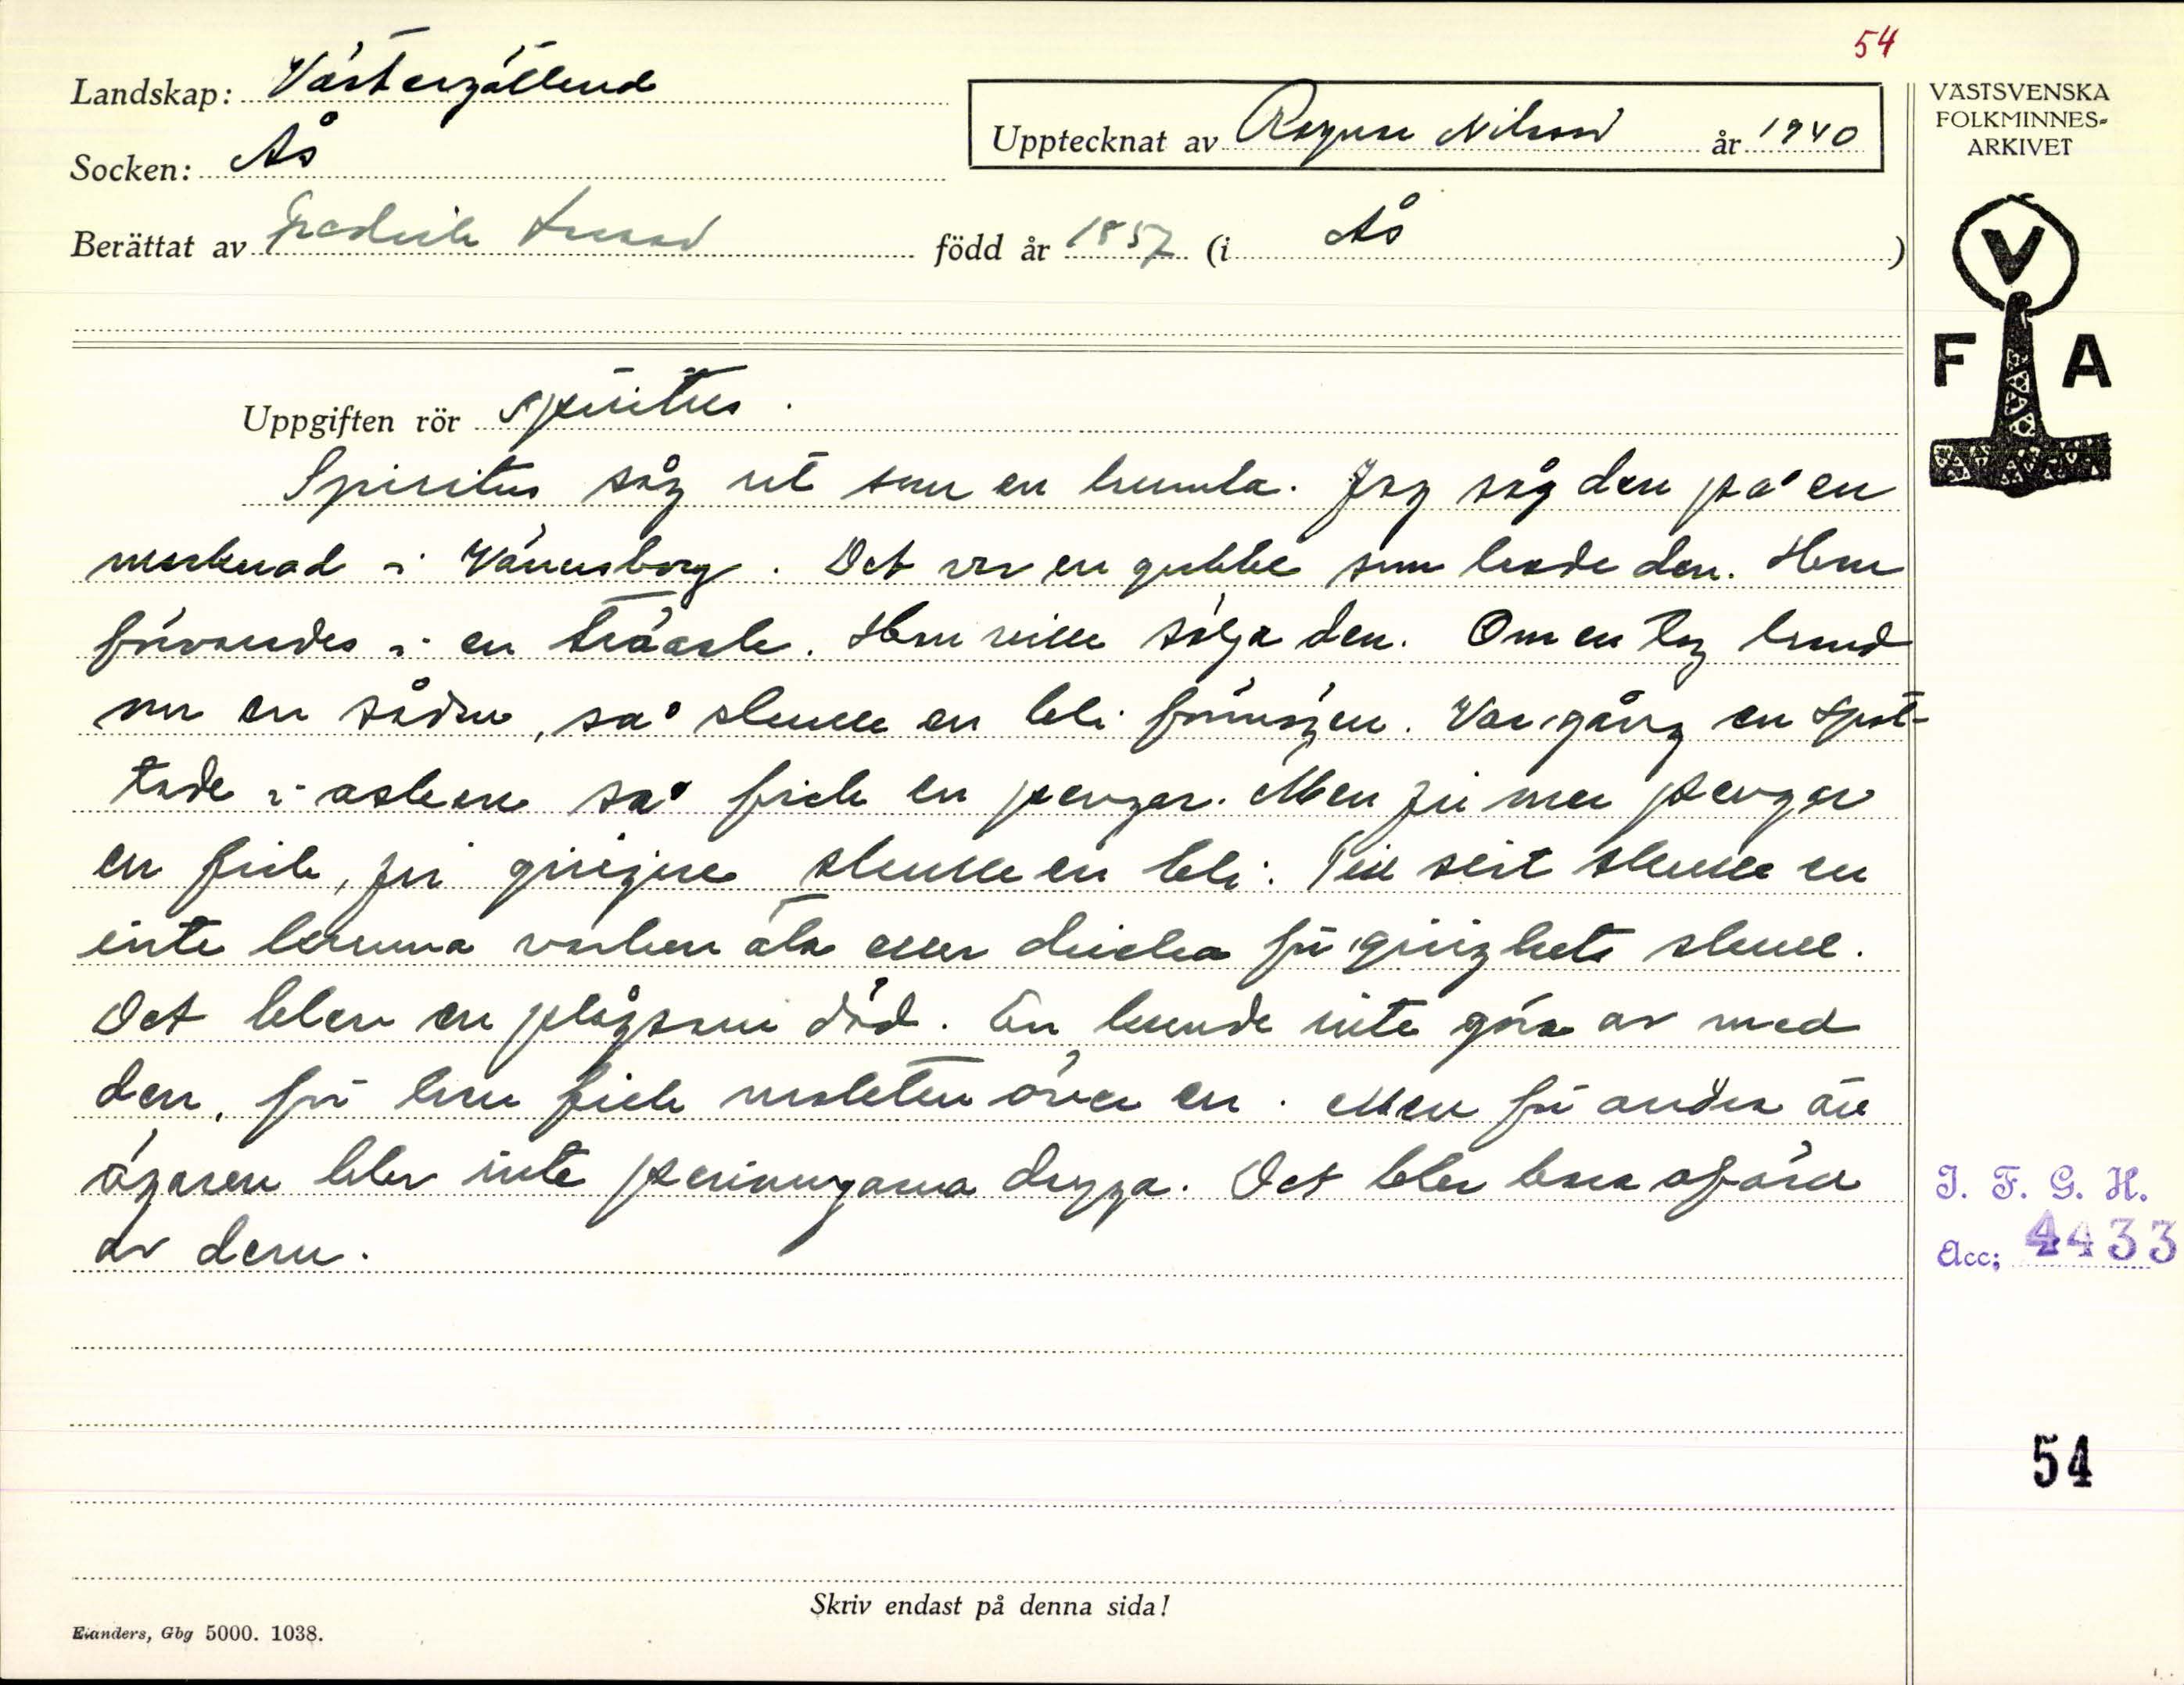 54
Landskap: Västergötland
Socken: Ås
Upptecknat av Ragnar Nilsson år 1940
Berättat av Fredrik född år 1857 (i Ås)
VÄSTSVENSKA
FOLKMINNES-
ARKIVET
V
F A
Uppgiften rör spiritus.
Spiritus såg ut som en humla. Jag såg den på en
marknad i Vänersborg. Det var en gubbe som hade den. Han
förvarades i en träask. Han ville sälja den. Om en tog hand
om en sådan, så skulle en bli förmögen. Var gång en spot-
tade i asken så fick en pengar. Men ju mer pengar
en fick, ju girigare skulle en bli. Till sist skulle en
inte kunna varken äta eller dricka för girighets skull.
Det blev en plågsam död. En kunde inte göra av med
den, för han fick makten över en. Men för andra än
ägaren blev inte penningarna dryga. Det blev bara ofärd
av dem.
I. F. G. H.
Acc; 4433
54
Skriv endast på denna sida!
Eianders, Gbg 5000. 1038.